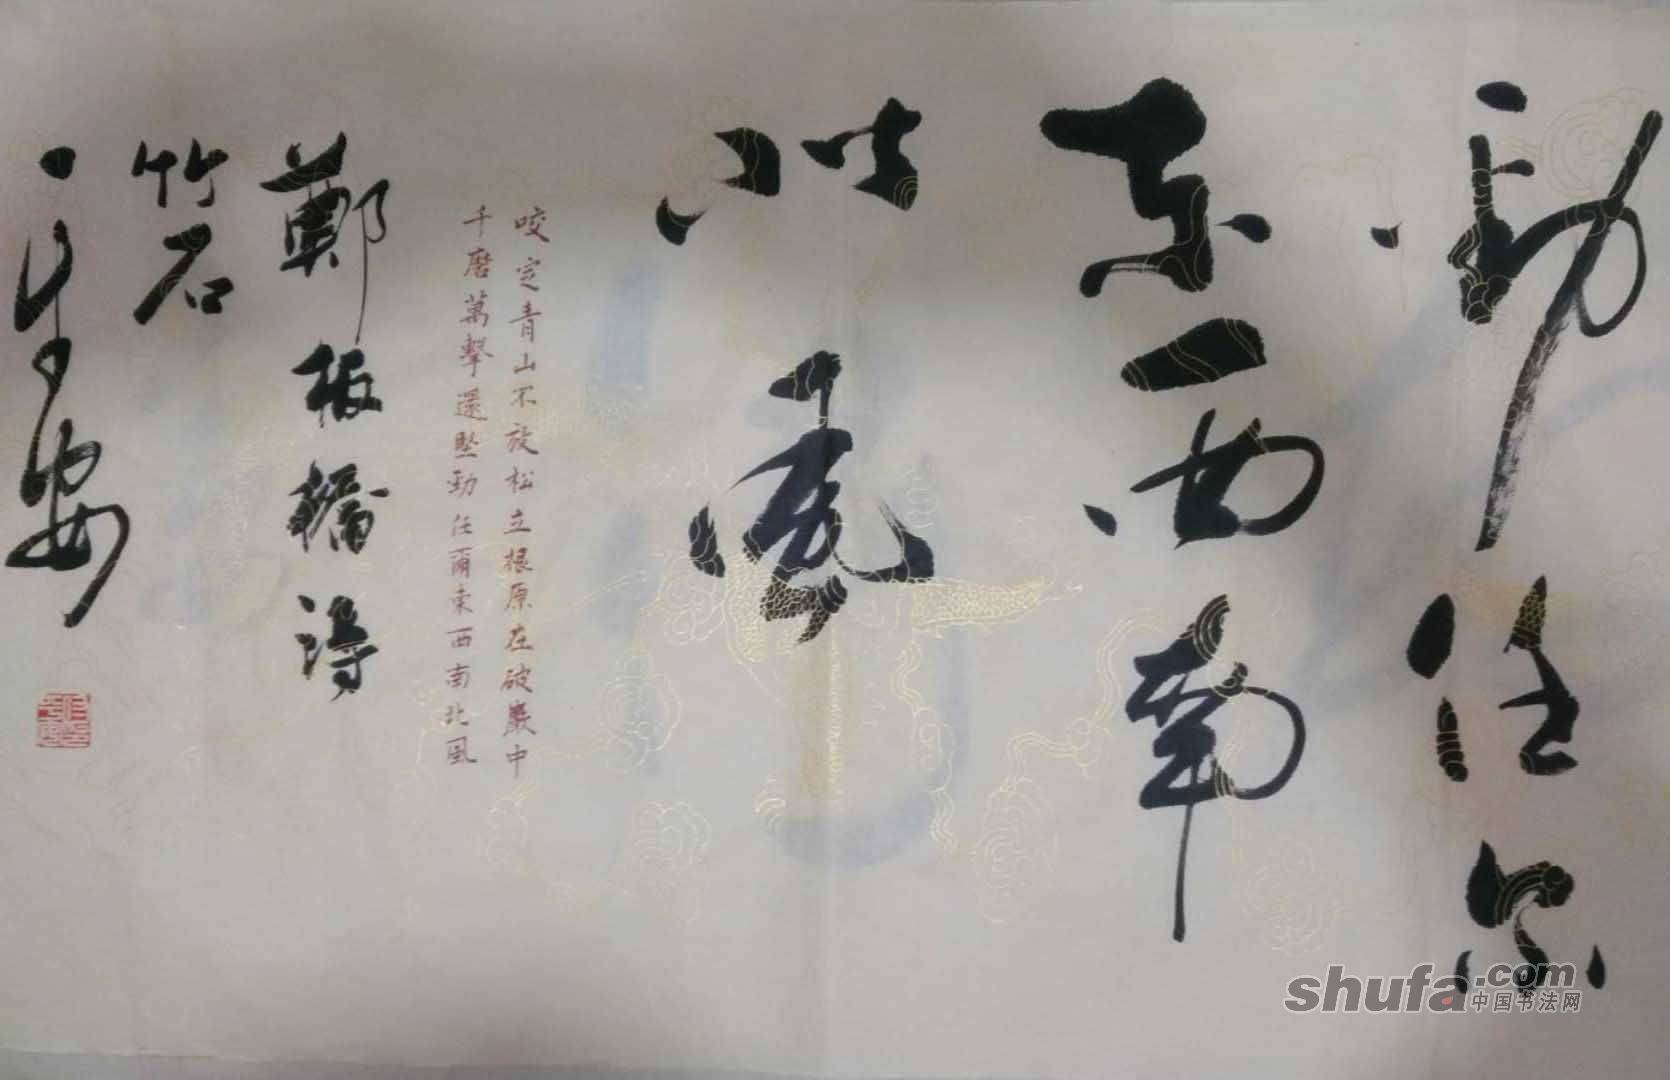 劲任尔
东西南
北风
咬定青山不放松立根原在破巖中
千磨萬擊還堅勁任爾東西南北風
鄭板橋詩
竹石
shufa.com
中国书法网